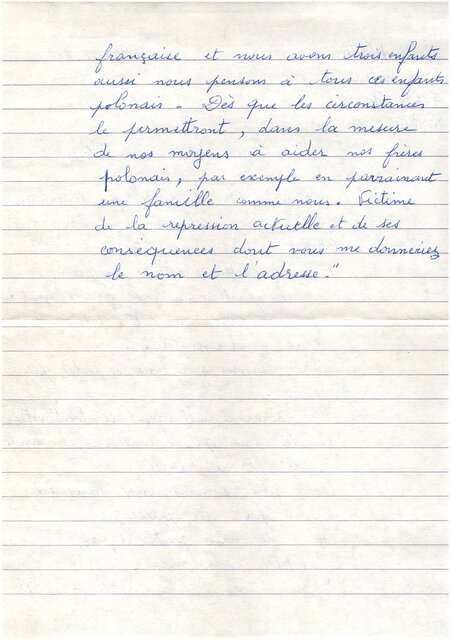 française et nous avons trois enfants
aussi nous pensons à tous ces enfants
polonais. Dès que les circonstances
le permettront, dans la mesure
de nos moyens à aider nos frères
polonais, par exemple en parrainant
une famille comme nous. Victime
de la repression actuelle et de ses
conséquences dont vous me donneriez
le nom et l'adresse."